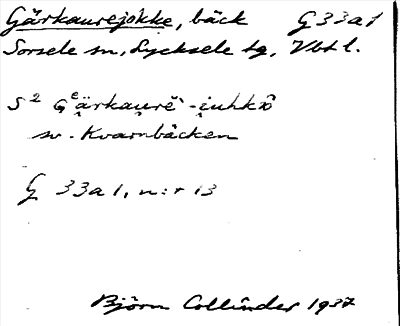 Gärkaurejåkke, bäck G 33a1
Sorsele sn, Lycksele tg, Vbtl.
S² 
sv. Kvarnbäcken
G 33a1, n:r 13
Björn Collinder 1937